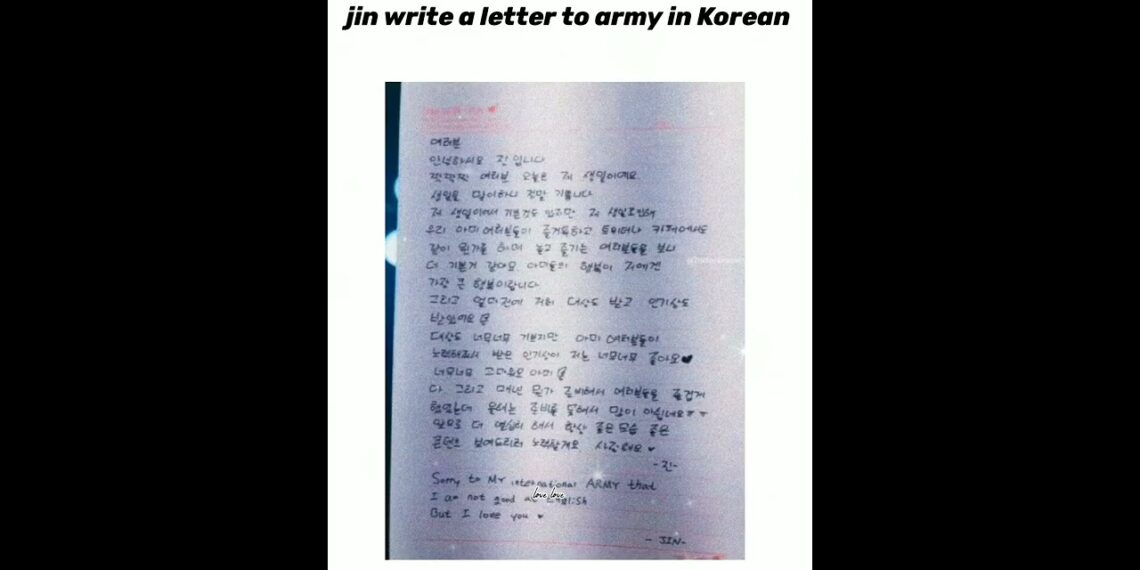 jin write a letter to army in Korean
여러분
안녕하세요 진입니다
짝짝짝 여러분 오늘은 저 생일이예요
생일을 많이하니 정말 기쁩니다
저 생일이여서 기쁜것도 있지만 저 생일로인해
우리 아미여러분들이 즐거워하고 트위터나 카페에서도
같이 뭔가를 하며 놀고 즐기는 여러분들을 보니
더 기쁜거 같아요 아미들의 행복이 저에겐
가장 큰 행복이랍니다
그리고 얼마전에 저희 대상도 받고 인기상도
받았어요
대상도 너무너무 기쁘지만 아미 여러분들이
노력해줘서 받은 인기상이 저는 너무너무 좋아요♥
너무너무 고마워요 아미
다 그리고 매년 뭔가 준비해서 여러분들을 즐겁게
했었는데 올해는 준비를 못해서 많이 아쉽네요ㅜㅜ
앞으로 더 열심히 해서 항상 좋은모습 좋은
콘텐츠 보여드리려 노력할게요 사랑해요 ♥
-진-
Sorry to My international ARMY that
I am not good at English
love love
But I love you ♥
- JIN-